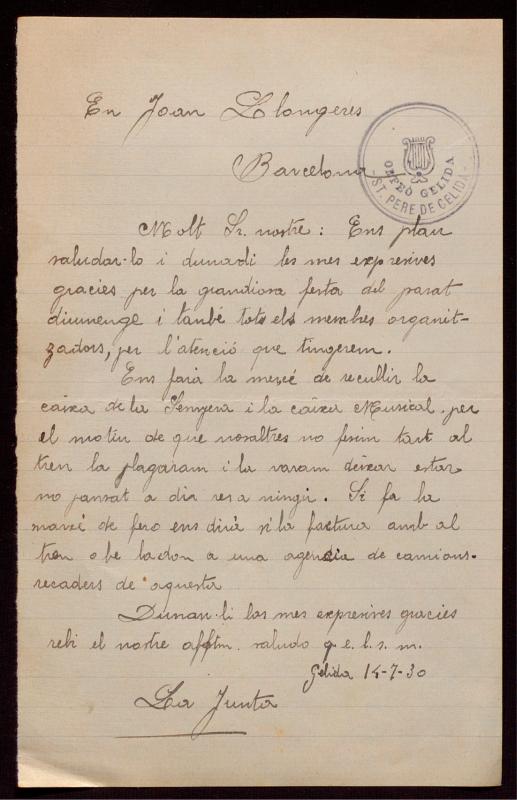 En Joan Llongeres
Barcelona
ORFEÓ GELIDA
- ST. PERE DE GELIDA -
Molt Sr. nostre: Ens plau
saludar-lo i dunadi les mes expresives
gracies per la grandiosa festa del pasat
diumenge i també tots els membres organit-
zadors, per l'atenció que tingerem.
Ens farà la mercé de recullir la
caixa de la Senyera i la caixa Musical. per
el motiu de que nosaltres no fesim tart al
tren la plagaram i la varam deixar estar
no pansat a dir res a ningú. Si fa la
marcé de fero ens dirà si la factura amb al
tren o be la don a una agencia de camions-
recaders de aquesta
Dunan-li las mes expresives gracies
rebi el nostre afftm. saludo q. e. l. s. m.
Gelida 14-7-30
La Junta